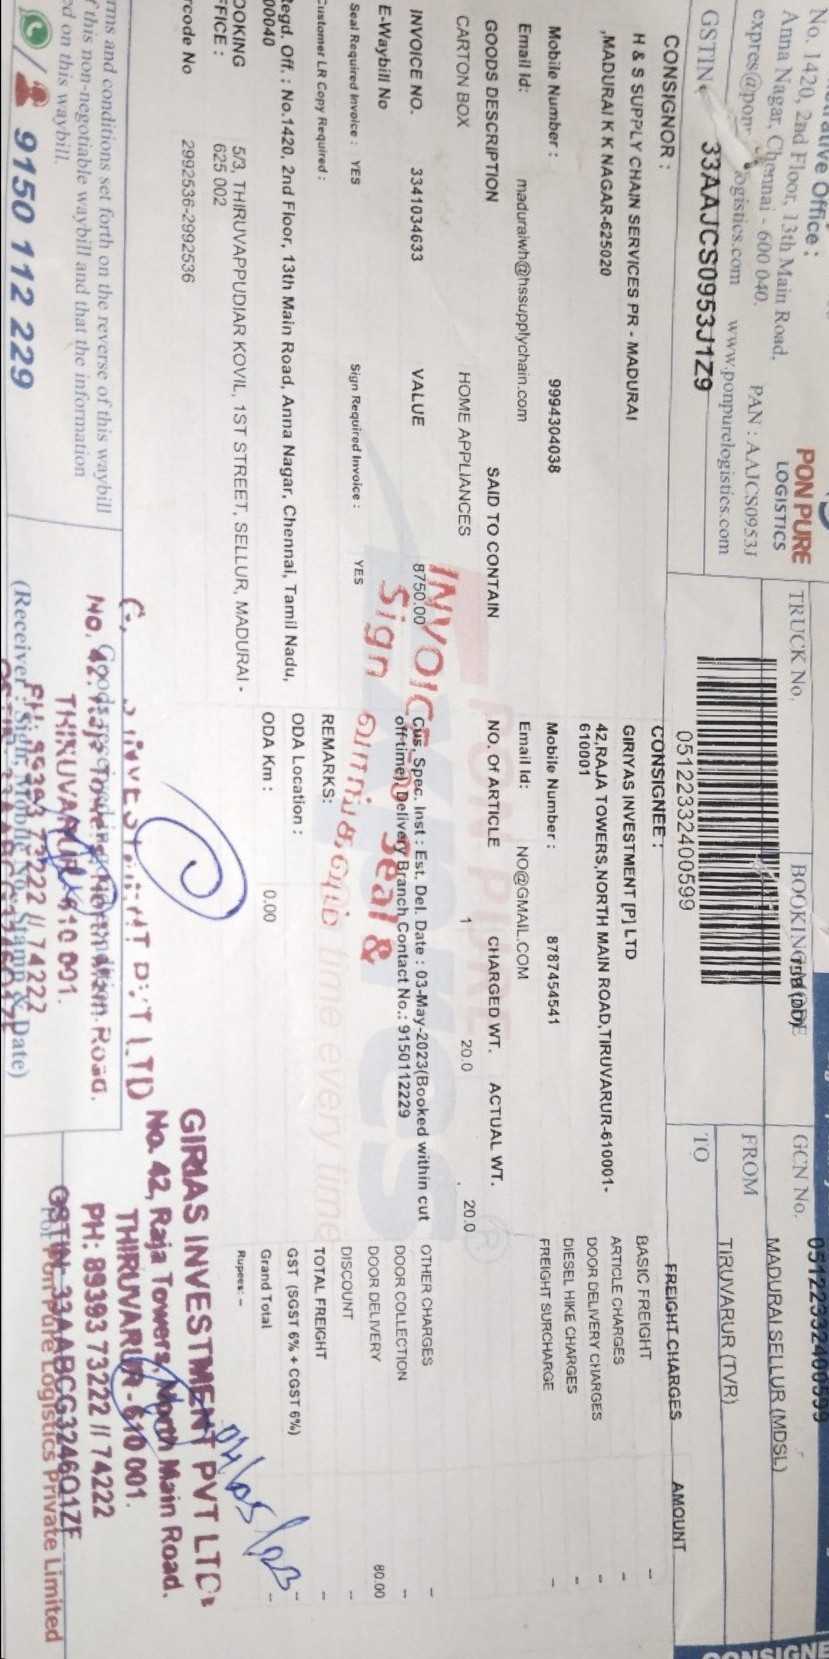 rative Office :
No. 1420, 2nd Floor, 13th Main Road,
Anna Nagar, Chennai - 600 040.
PAN : AAJCS0953J
www.ponpurelogistics.com
GSTIN 33AAJCS0953J1Z9
PON PURE
LOGISTICS
TRUCK No.
BOOKING MODE
GCN No.
05122332400599
FROM
MADURAI SELLUR (MDSL)
TO
TIRUVARUR (TVR)
05122332400599
CONSIGNOR :
H & S SUPPLY CHAIN SERVICES PR - MADURAI
,MADURAI K K NAGAR-625020
Mobile Number : 9994304038
Email Id: maduraiwh@hssupplychain.com
CONSIGNEE :
GIRIYAS INVESTMENT [P] LTD
42,RAJA TOWERS,NORTH MAIN ROAD,TIRUVARUR-610001-
610001
Mobile Number : 8787454541
Email Id: NO@GMAIL.COM
GOODS DESCRIPTION SAID TO CONTAIN NO. Of ARTICLE CHARGED WT. ACTUAL WT.
CARTON BOX HOME APPLIANCES 1 20.0 20.0
INVOICE NO. 3341034633 VALUE 8750.00
E-Waybill No
Cus. Spec. Inst : Est. Del. Date : 03-May-2023(Booked within cut
off time) Delivery Branch Contact No.: 9150112229
Seal Required Invoice : YES Sign Required Invoice : YES
Customer LR Copy Required :
REMARKS:
Regd. Off. : No.1420, 2nd Floor, 13th Main Road, Anna Nagar, Chennai, Tamil Nadu,
00040
ODA Location :
ODA Km : 0.00
OOKING
FFICE : 5/3, THIRUVAPPUDIAR KOVIL, 1ST STREET, SELLUR, MADURAI -
625 002
rcode No 2992536-2992536
FREIGHT CHARGES AMOUNT
BASIC FREIGHT -
ARTICLE CHARGES -
DOOR DELIVERY CHARGES -
DIESEL HIKE CHARGES -
FREIGHT SURCHARGE -
OTHER CHARGES -
DOOR COLLECTION -
DOOR DELIVERY 80.00
DISCOUNT -
TOTAL FREIGHT -
GST (SGST 6% + CGST 6%) -
Grand Total -
Rupees: -
Seal &
Sign வாங்கவும்
time every time
rms and conditions set forth on the reverse of this waybill
f this non-negotiable waybill and that the information
ed on this waybill.
9150 112 229
(Receiver
Stamp & Date)
No. 42, Raja Towers, North Main Road.
THIRUVARUR - 610 001.
PH: 89393 73222 // 74222
GIRIAS INVESTMENT PVT LTD
No. 42, Raja Towers, North Main Road.
THIRUVARUR - 610 001.
PH: 89393 73222 // 74222
GSTIN: 33AABCG3246Q1ZF
For Pon Pure Logistics Private Limited
04/05/23
CONSIGNE